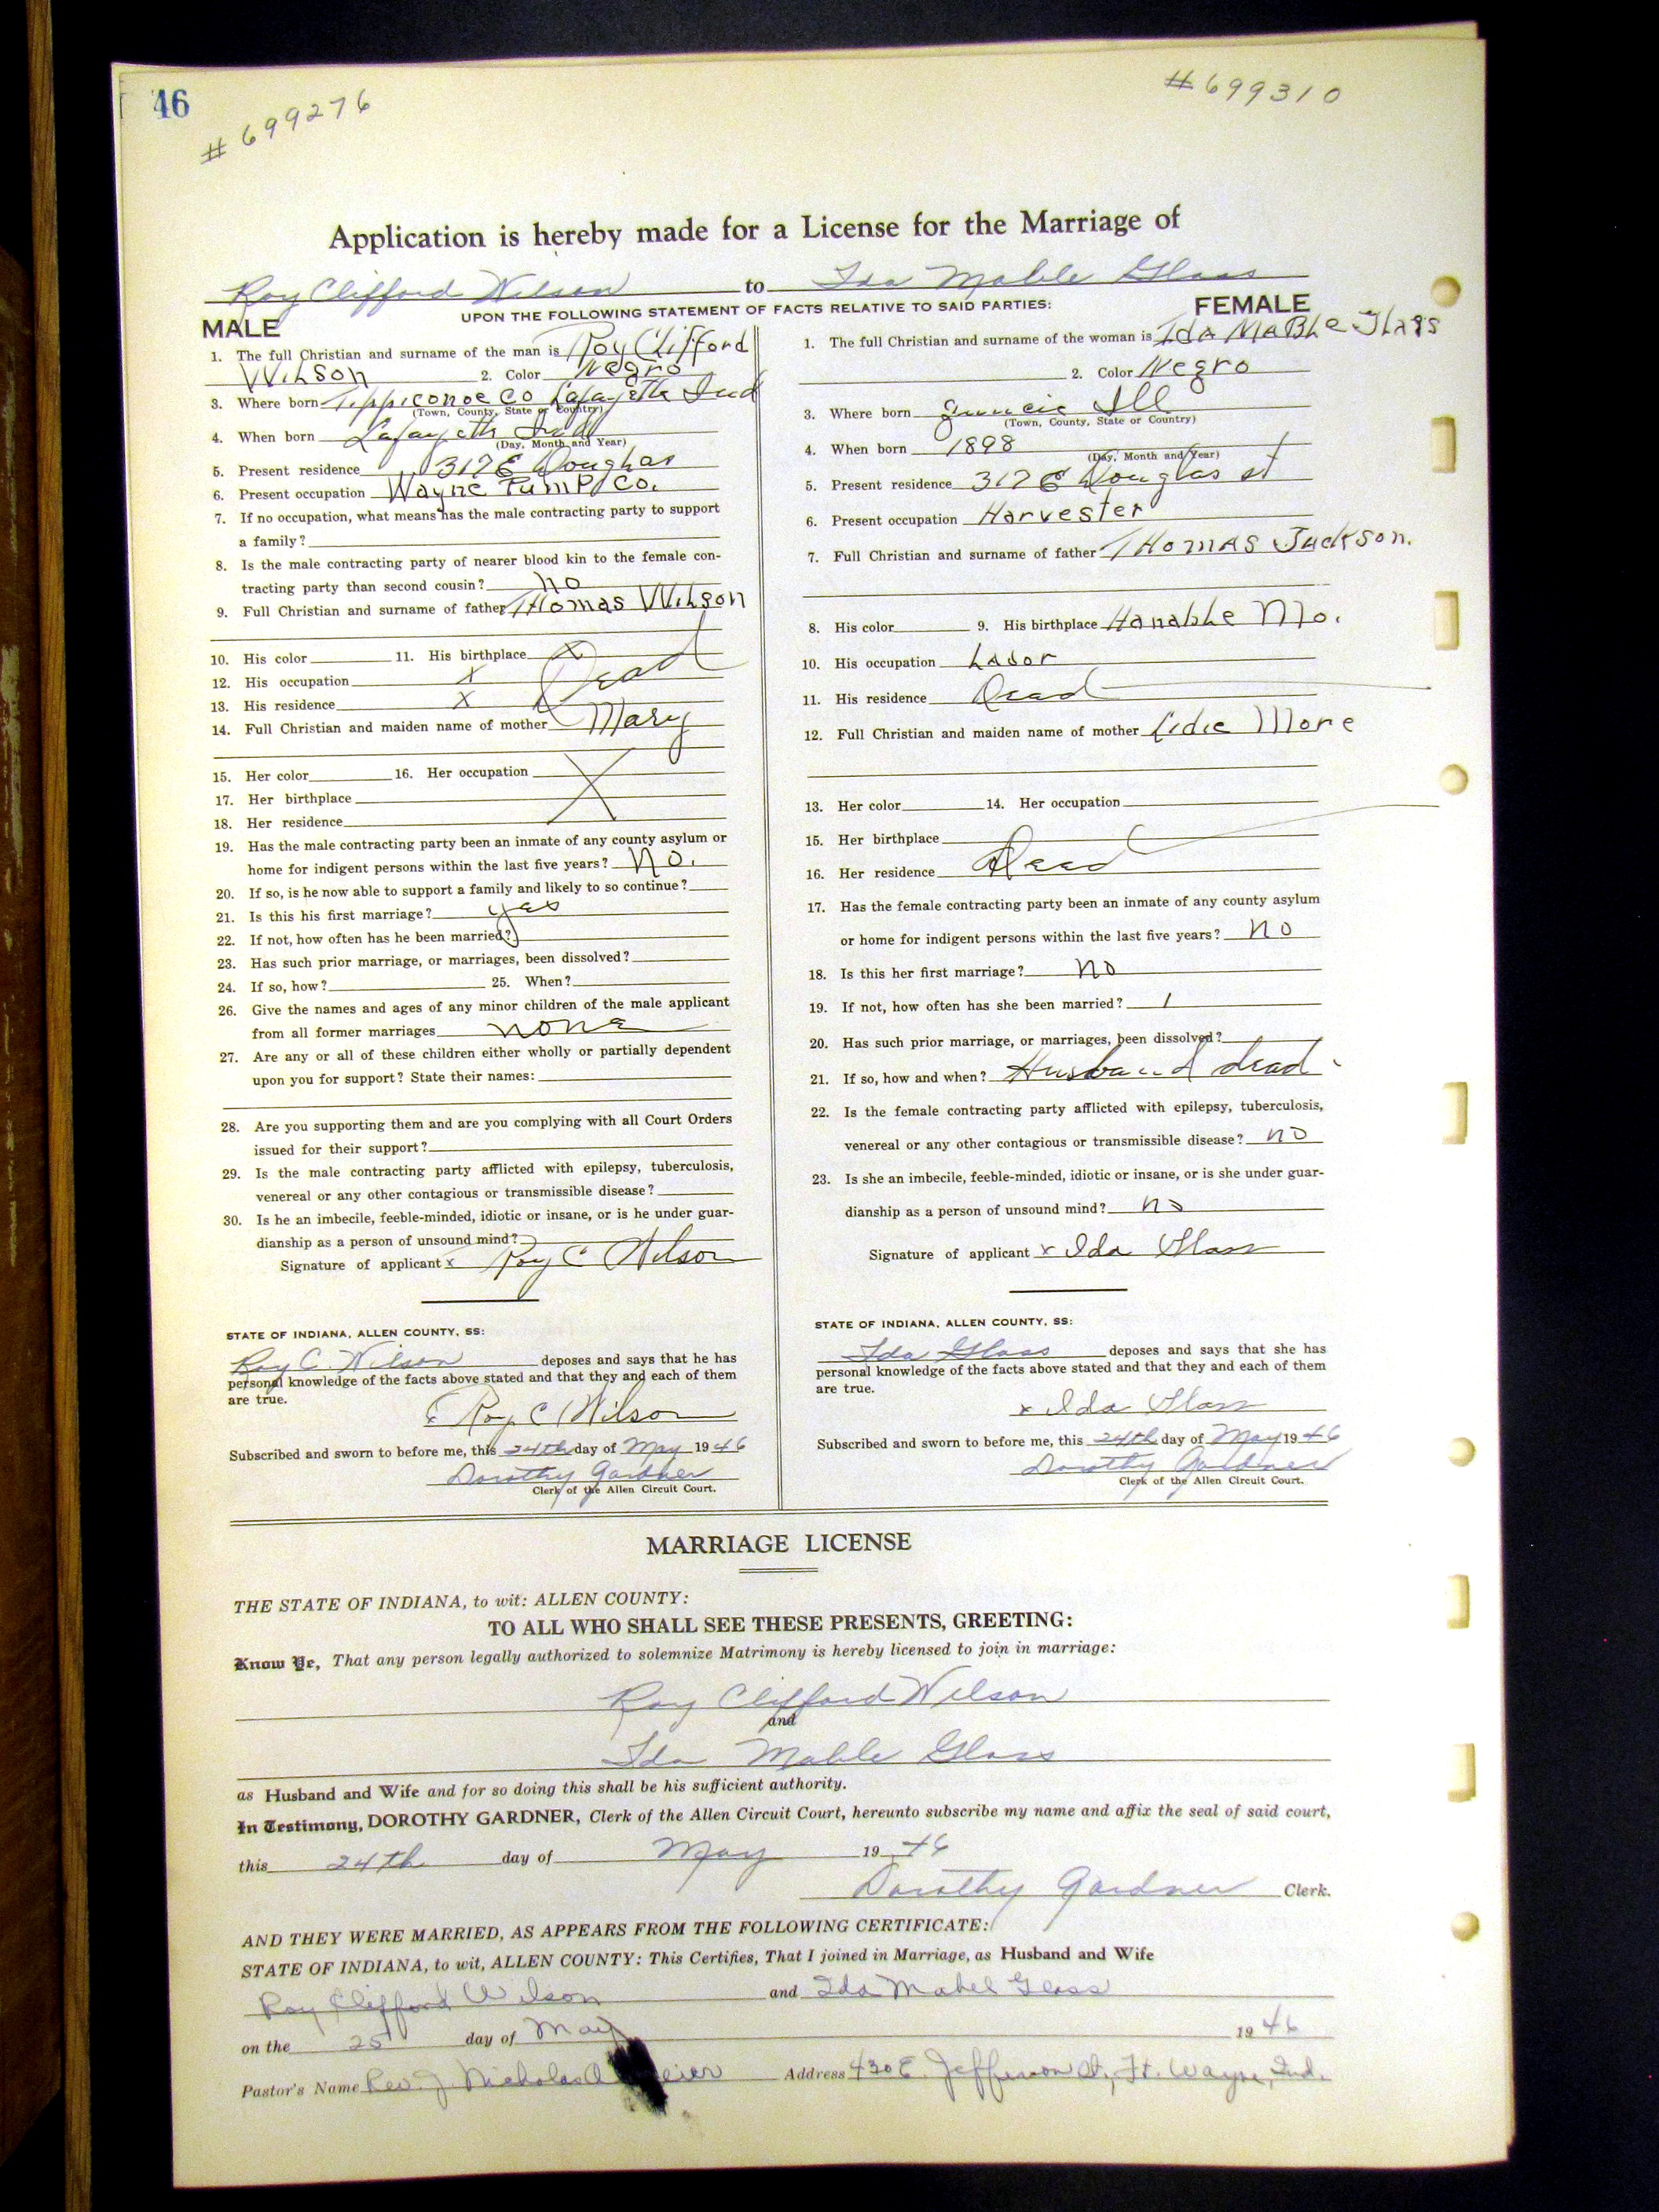 46
# 699276
# 699310
Application is hereby made for a License for the Marriage of
Roy Clifford Wilson to Ida Mable Glass
UPON THE FOLLOWING STATEMENT OF FACTS RELATIVE TO SAID PARTIES:
MALE
1. The full Christian and surname of the man is Roy Clifford
Wilson 2. Color Negro
3. Where born Tippiconoe Co Lafayette Ind
(Town, County, State or Country)
4. When born Lafayette Ind
(Day, Month and Year)
5. Present residence 317 E Douglas
6. Present occupation Wayne Pump Co.
7. If no occupation, what means has the male contracting party to support
a family?
8. Is the male contracting party of nearer blood kin to the female con-
tracting party than second cousin? no
9. Full Christian and surname of father Thomas Wilson
10. His color 11. His birthplace X
12. His occupation X Dead
13. His residence X
14. Full Christian and maiden name of mother Mary
15. Her color 16. Her occupation
17. Her birthplace X
18. Her residence
19. Has the male contracting party been an inmate of any county asylum or
home for indigent persons within the last five years? no.
20. If so, is he now able to support a family and likely to so continue?
21. Is this his first marriage? yes
22. If not, how often has he been married?
23. Has such prior marriage, or marriages, been dissolved?
24. If so, how? 25. When?
26. Give the names and ages of any minor children of the male applicant
from all former marriages none
27. Are any or all of these children either wholly or partially dependent
upon you for support? State their names:
28. Are you supporting them and are you complying with all Court Orders
issued for their support?
29. Is the male contracting party afflicted with epilepsy, tuberculosis,
venereal or any other contagious or transmissible disease?
30. Is he an imbecile, feeble-minded, idiotic or insane, or is he under guar-
dianship as a person of unsound mind?
Signature of applicant x Roy C Wilson
STATE OF INDIANA, ALLEN COUNTY, SS:
Roy C. Wilson deposes and says that he has
personal knowledge of the facts above stated and that they and each of them
are true.
x Roy C Wilson
Subscribed and sworn to before me, this 24th day of May 1946
Dorothy Gardner
Clerk of the Allen Circuit Court.
FEMALE
1. The full Christian and surname of the woman is Ida Mable Glass
2. Color Negro
3. Where born Ill
(Town, County, State or Country)
4. When born 1898
(Day, Month and Year)
5. Present residence 317 E Douglas st
6. Present occupation Harvester
7. Full Christian and surname of father Thomas Jackson.
8. His color 9. His birthplace Hanable Mo.
10. His occupation Labor
11. His residence Dead
12. Full Christian and maiden name of mother Lidie More
13. Her color 14. Her occupation
15. Her birthplace
16. Her residence Dead
17. Has the female contracting party been an inmate of any county asylum
or home for indigent persons within the last five years? no
18. Is this her first marriage? no
19. If not, how often has she been married? 1
20. Has such prior marriage, or marriages, been dissolved?
21. If so, how and when? Husband dead.
22. Is the female contracting party afflicted with epilepsy, tuberculosis,
venereal or any other contagious or transmissible disease? no
23. Is she an imbecile, feeble-minded, idiotic or insane, or is she under guar-
dianship as a person of unsound mind? no
Signature of applicant x Ida Glass
STATE OF INDIANA, ALLEN COUNTY, SS:
Ida Glass deposes and says that she has
personal knowledge of the facts above stated and that they and each of them
are true.
x Ida Glass
Subscribed and sworn to before me, this 24th day of May 1946
Dorothy Gardner
Clerk of the Allen Circuit Court.
MARRIAGE LICENSE
THE STATE OF INDIANA, to wit: ALLEN COUNTY:
TO ALL WHO SHALL SEE THESE PRESENTS, GREETING:
Know Ye, That any person legally authorized to solemnize Matrimony is hereby licensed to join in marriage:
Roy Clifford Wilson
and
Ida Mable Glass
as Husband and Wife and for so doing this shall be his sufficient authority.
In Testimony, DOROTHY GARDNER, Clerk of the Allen Circuit Court, hereunto subscribe my name and affix the seal of said court,
this 24th day of May 1946
Dorothy Gardner Clerk.
AND THEY WERE MARRIED, AS APPEARS FROM THE FOLLOWING CERTIFICATE:
STATE OF INDIANA, to wit, ALLEN COUNTY: This Certifies, That I joined in Marriage, as Husband and Wife
Roy Clifford Wilson and Ida Mabel Glass
on the 25 day of May 1946
Pastor's Name Rev. J. Nicholas Address 430 E. Jefferson St., Ft. Wayne, Ind.